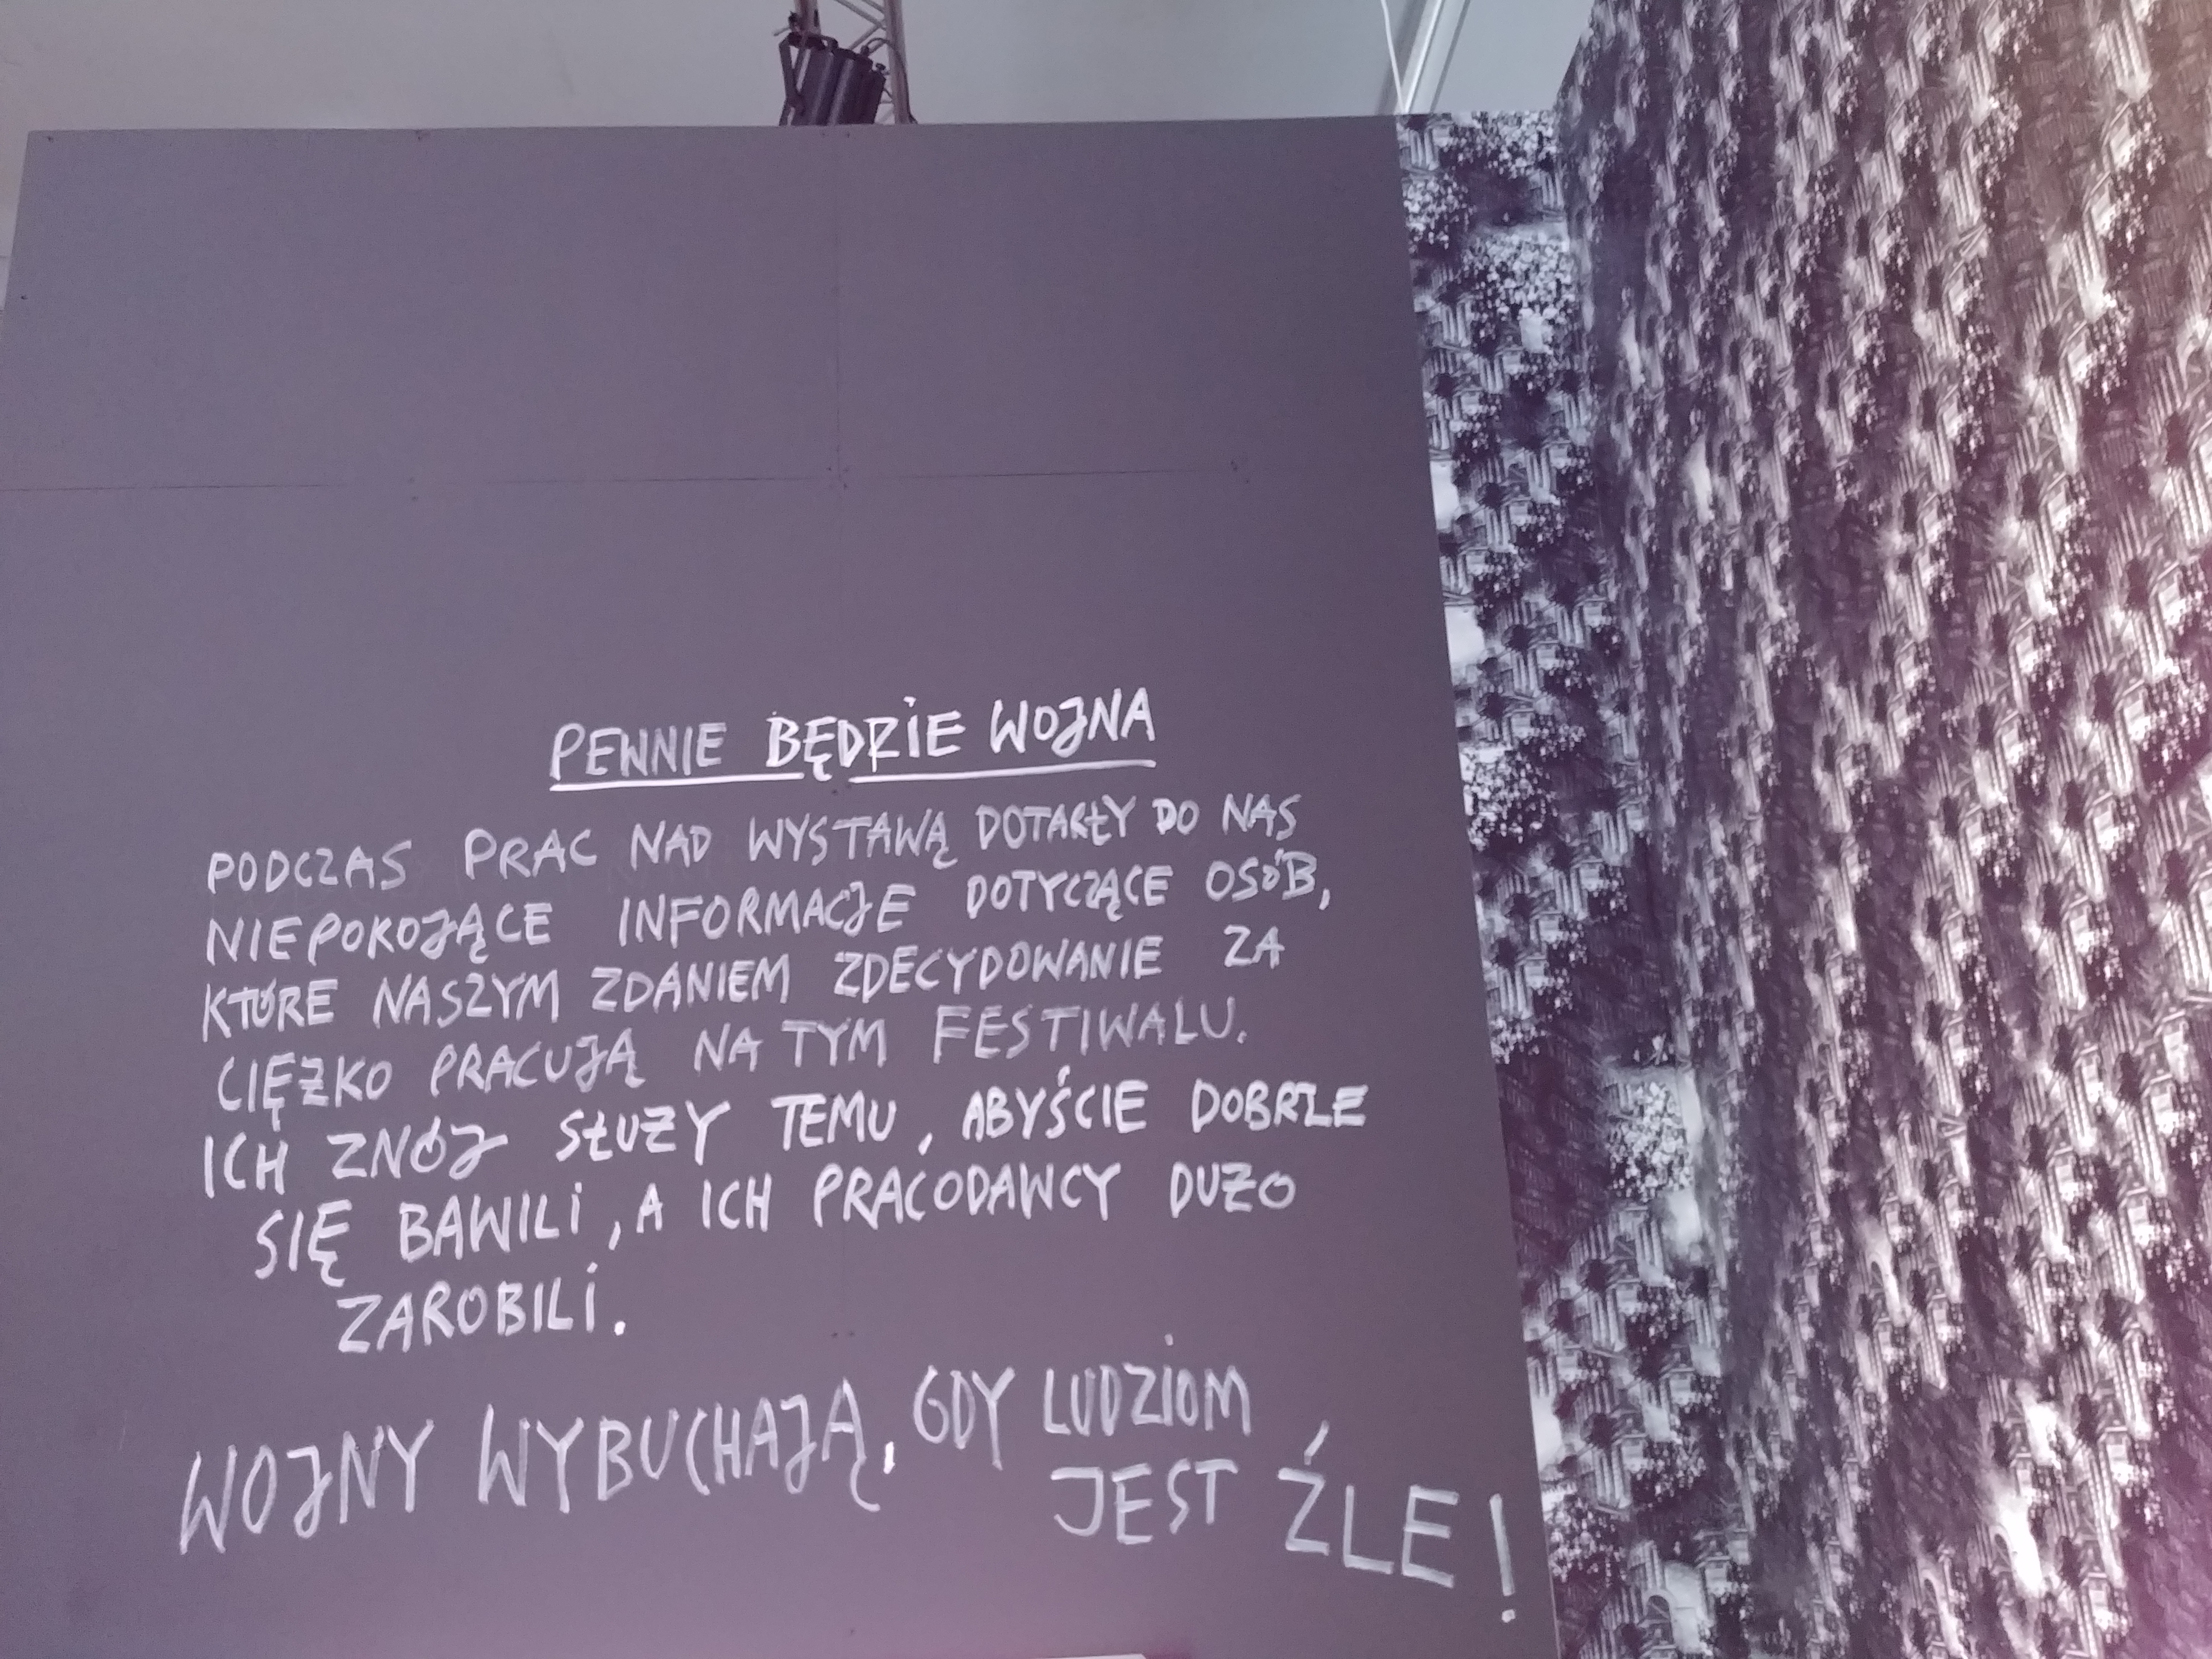 PEWNIE BĘDZIE WOJNA
PODCZAS PRAC NAD WYSTAWĄ DOTARŁY DO NAS
NIEPOKOJĄCE INFORMACJE DOTYCZĄCE OSÓB,
KTÓRE NASZYM ZDANIEM ZDECYDOWANIE ZA
CIĘŻKO PRACUJĄ NA TYM FESTIWALU.
ICH ZNÓJ SŁUŻY TEMU, ABYŚCIE DOBRZE
SIĘ BAWILI, A ICH PRACODAWCY DUŻO
ZAROBILI.
WOJNY WYBUCHAJĄ, GDY LUDZIOM
JEST ŹLE!